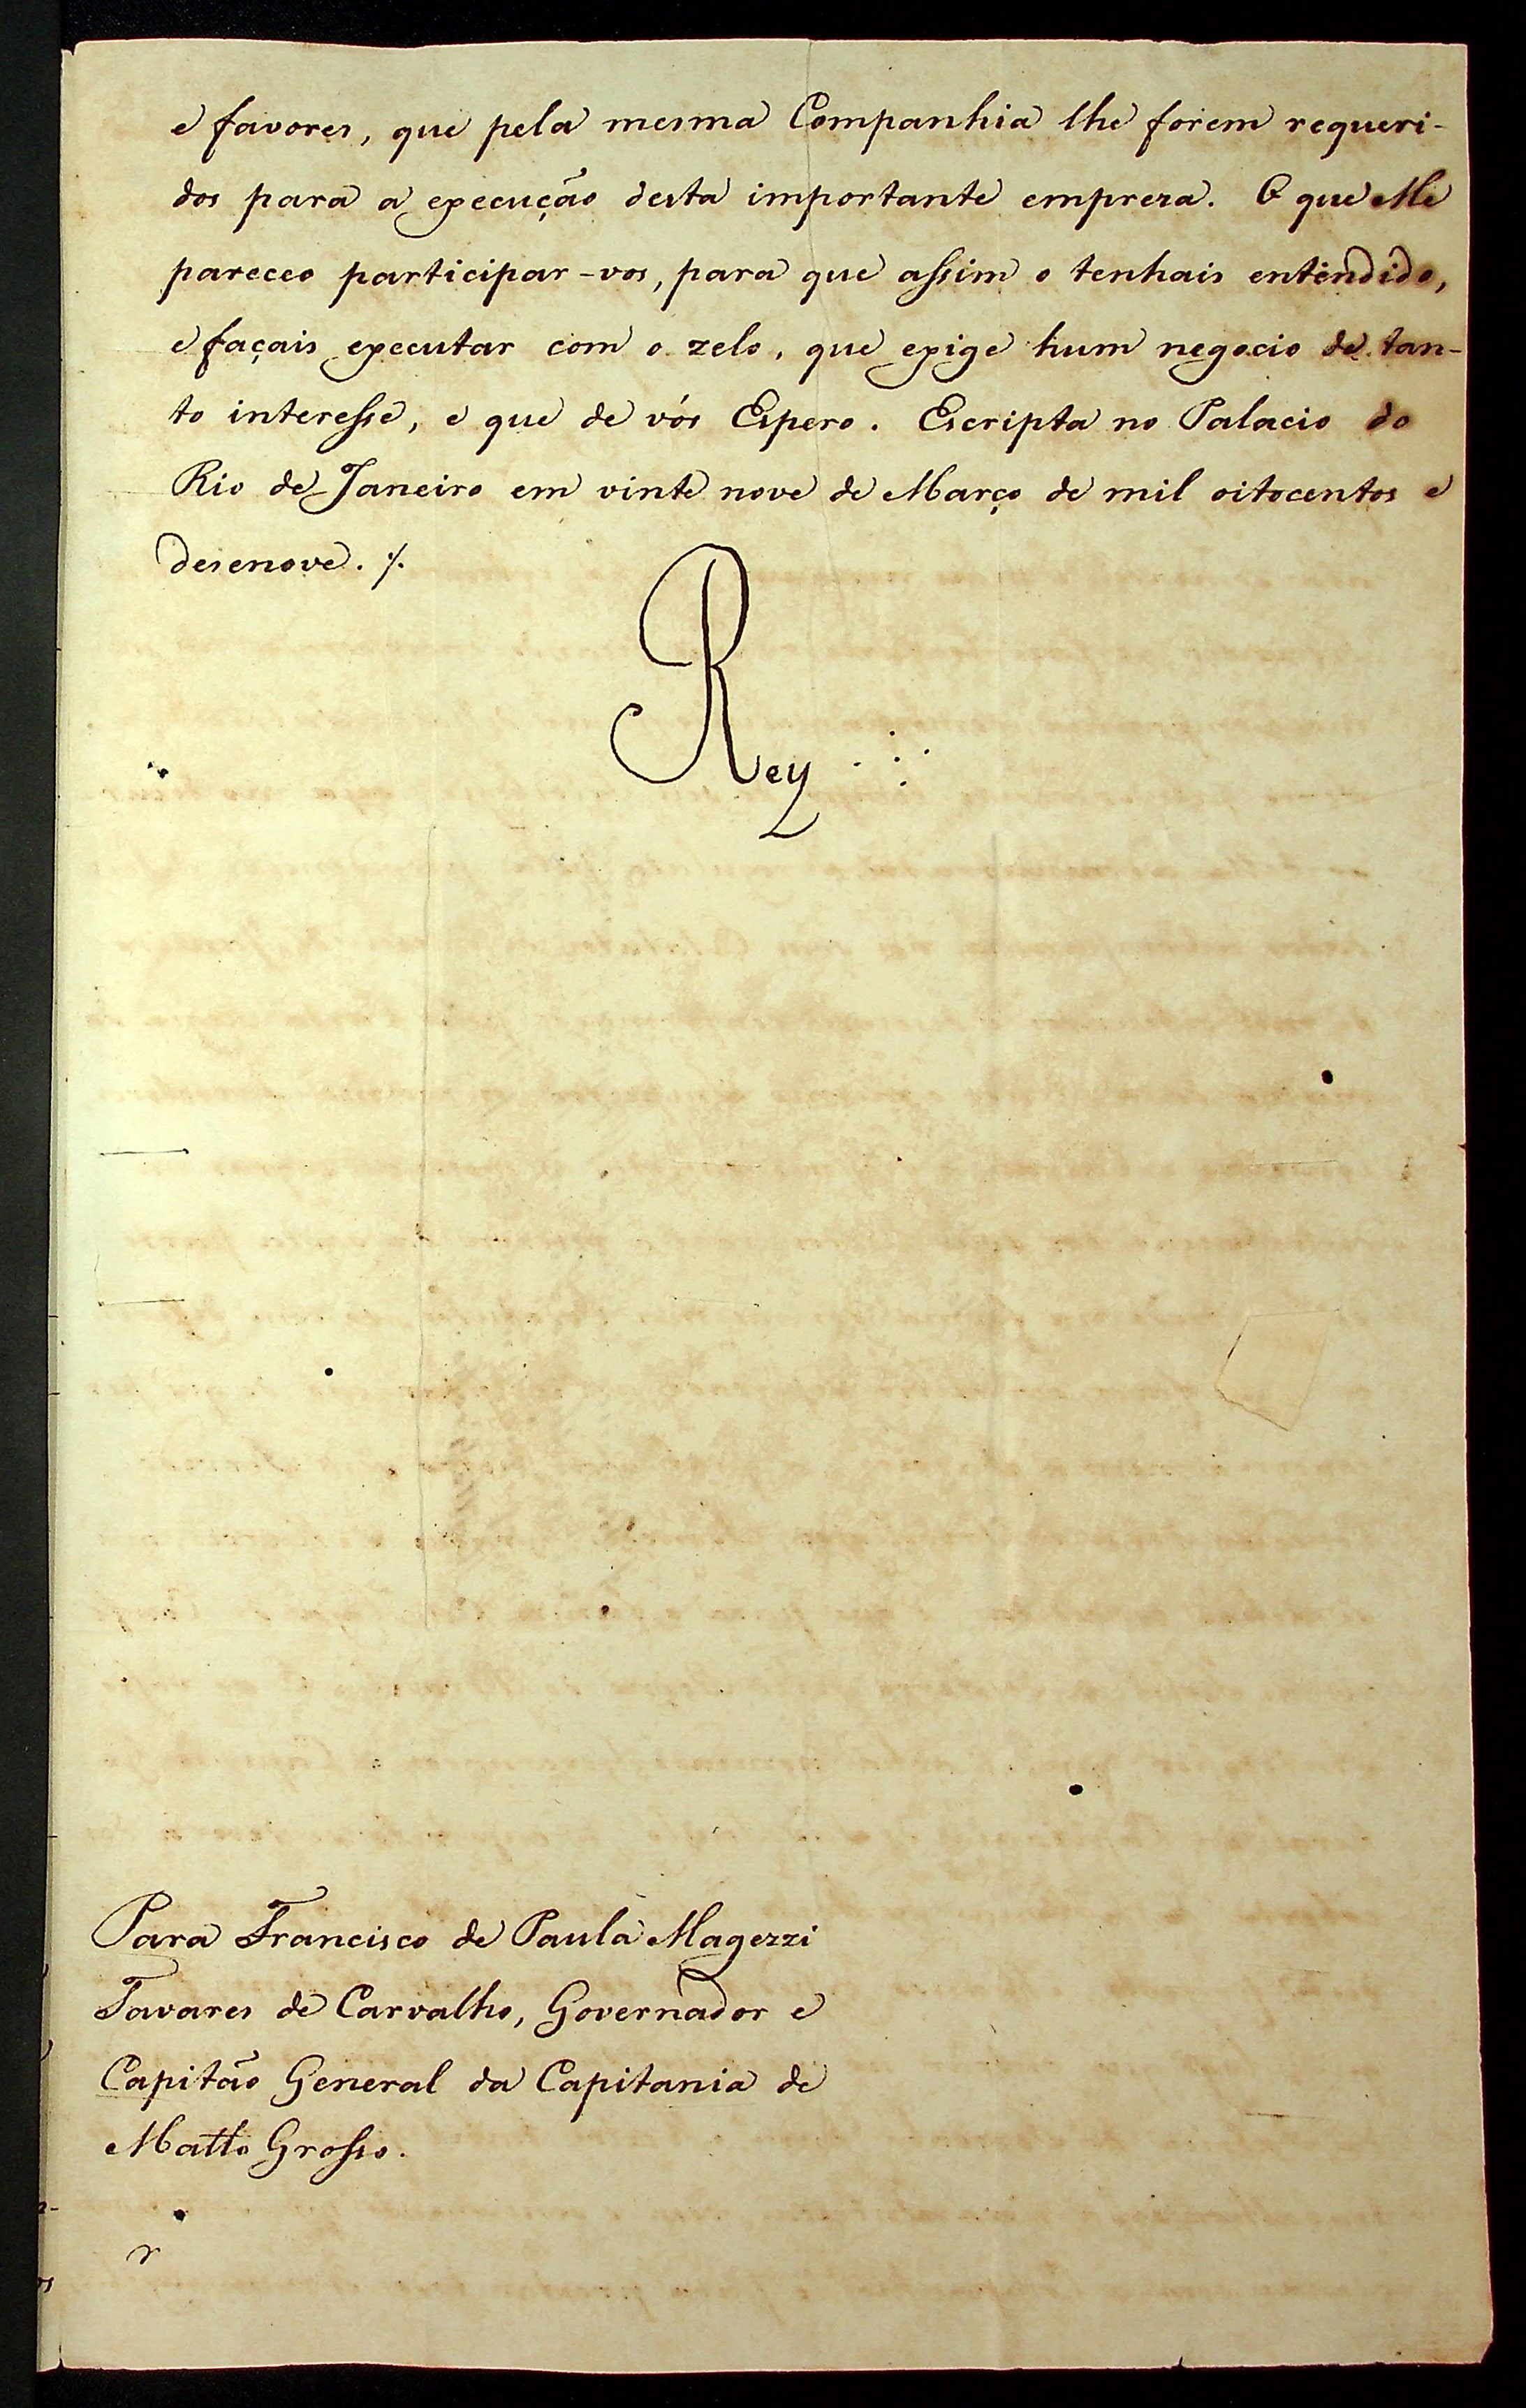 e favores, que pela mesma Companhia lhe forem requeri-
dos para a execução desta importante empreza. O que Me
pareceo participar-vos, para que assim o tenhais entendido,
e façais executar com o zelo, que exige hum negocio de tan-
to interesse, e que de vós Espero. Escripta no Palacio do
Rio de Janeiro em vinte nove de Março de mil oitocentos e
desenove. /.
Rey
Para Francisco de Paula Magezzi
Tavares de Carvalho, Governador e
Capitão General da Capitania de
Matto Grosso.